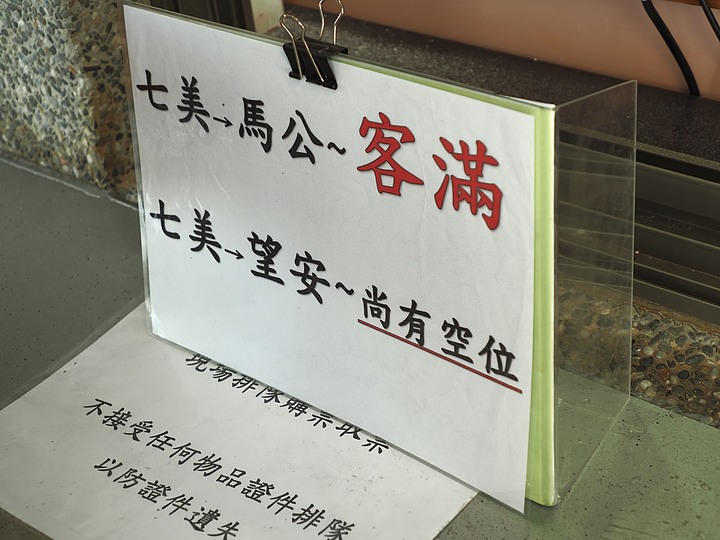 七美→馬公~客滿
七美→望安~尚有空位
現場排隊購票取票
不接受任何物品證件排隊
以防證件遺失